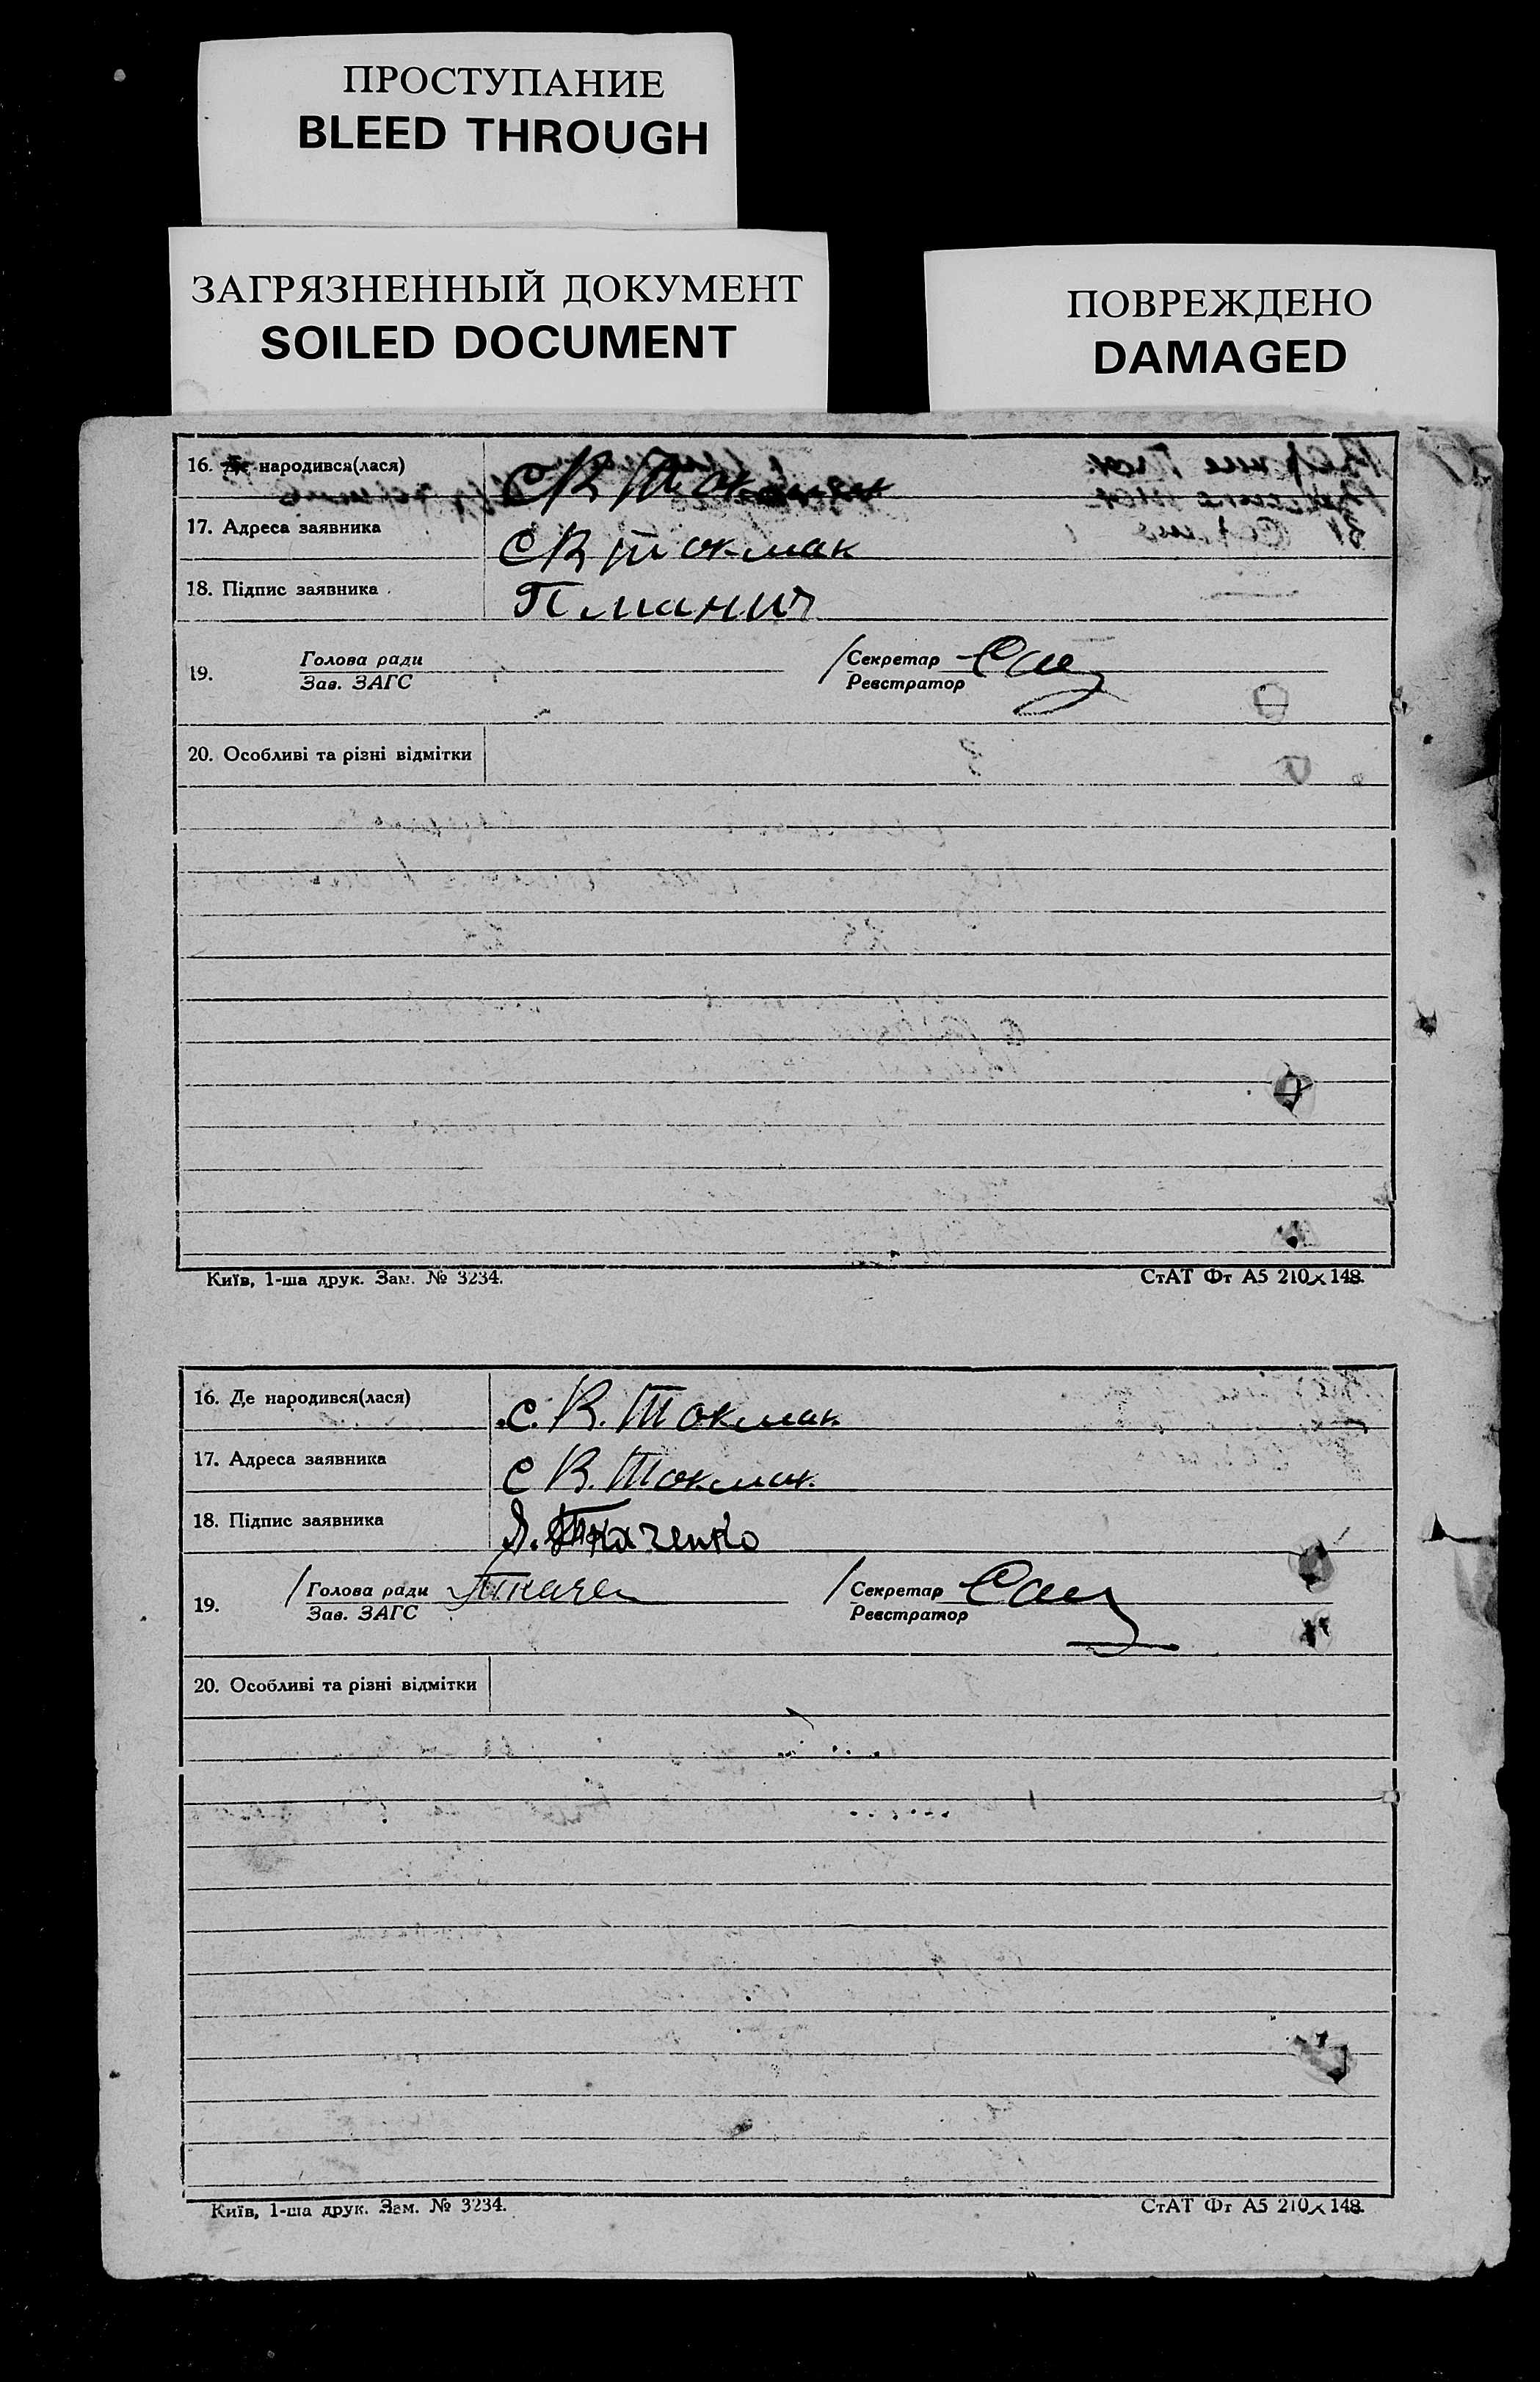 ПРОСТУПАНИЕ
BLEED THROUGH
ЗАГРЯЗНЕННЫЙ ДОКУМЕНТ
SOILED DOCUMENT
ПОВРЕЖДЕНО
DAMAGED
16. Де народився(лася) С В Токмак
17. Адреса заявника С В Токмак
18. Підпис заявника
19. Голова ради Секретар
Зав. ЗАГС Реєстратор
20. Особливі та різні відмітки
Київ, 1-ша друк. Зам. № 3234. СтАТ Фт А5 210×148.
16. Де народився(лася) с. В. Токмак
17. Адреса заявника с В. Токмак
18. Підпис заявника Ткаченко
19. Голова ради Секретар
Зав. ЗАГС Реєстратор
20. Особливі та різні відмітки
Київ, 1-ша друк. Зам. № 3234. СтАТ Фт А5 210×148.